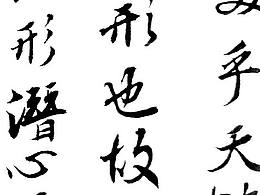 乎天
形也故
形潛心